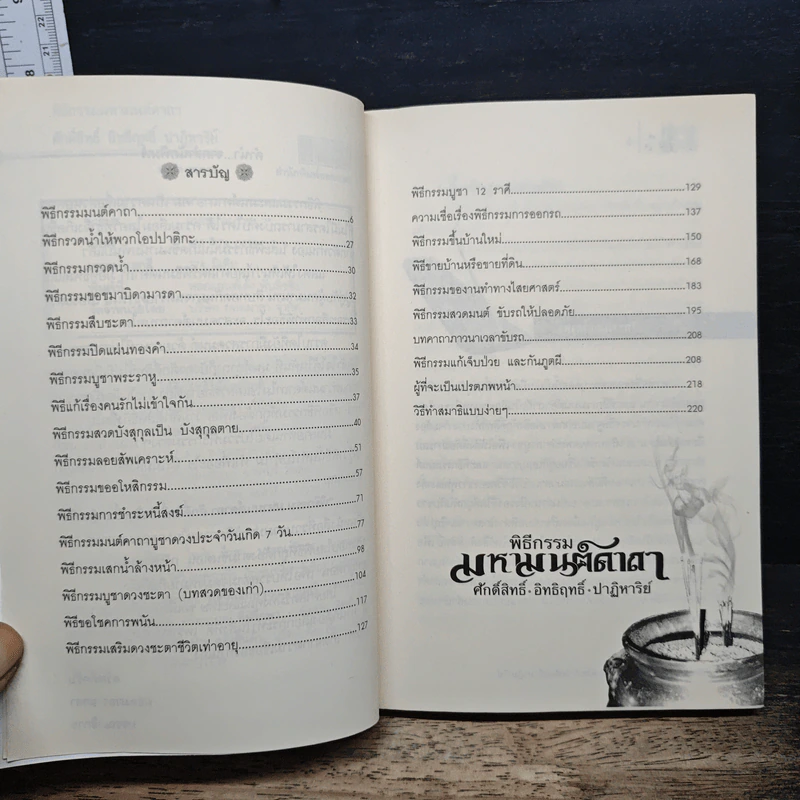 สารบัญ
พิธีกรรมมนต์คาถา.....6
พิธีรวดน้ำให้พวกโอปปาติกะ.....27
พิธีกรรมกรวดน้ำ.....30
พิธีกรรมขอขมาบิดามารดา.....32
พิธีกรรมสืบชะตา.....33
พิธีกรรมปิดแผ่นทองคำ.....34
พิธีกรรมบูชาพระราหู.....35
พิธีแก้เรื่องคนรักไม่เข้าใจกัน.....37
พิธีกรรมสวดบังสุกุลเป็น บังสุกุลตาย.....40
พิธีกรรมลอยสัพเคราะห์.....51
พิธีกรรมขออโหสิกรรม.....57
พิธีกรรมการชำระหนี้สงฆ์.....71
พิธีกรรมมนต์คาถาบูชาดวงประจำวันเกิด 7 วัน.....77
พิธีกรรมเสกน้ำล้างหน้า.....98
พิธีกรรมบูชาดวงชะตา (บทสวดของเก่า).....104
พิธีขอโชคการพนัน.....117
พิธีกรรมเสริมดวงชะตาชีวิตเท่าอายุ.....127
พิธีกรรมบูชา 12 ราศี.....129
ความเชื่อเรื่องพิธีกรรมการออกรถ.....137
พิธีกรรมขึ้นบ้านใหม่.....150
พิธีขายบ้านหรือขายที่ดิน.....168
พิธีกรรมของานทำทางไสยศาสตร์.....183
พิธีกรรมสวดมนต์ ขับรถให้ปลอดภัย.....195
บทคาถาภาวนาเวลาขับรถ.....208
พิธีกรรมแก้เจ็บป่วย และกันภูตผี.....208
ผู้ที่จะเป็นเปรตภพหน้า.....218
วิธีทำสมาธิแบบง่ายๆ.....220
พิธีกรรม
มหามนต์คาถา
ศักดิ์สิทธิ์•อิทธิฤทธิ์•ปาฏิหาริย์